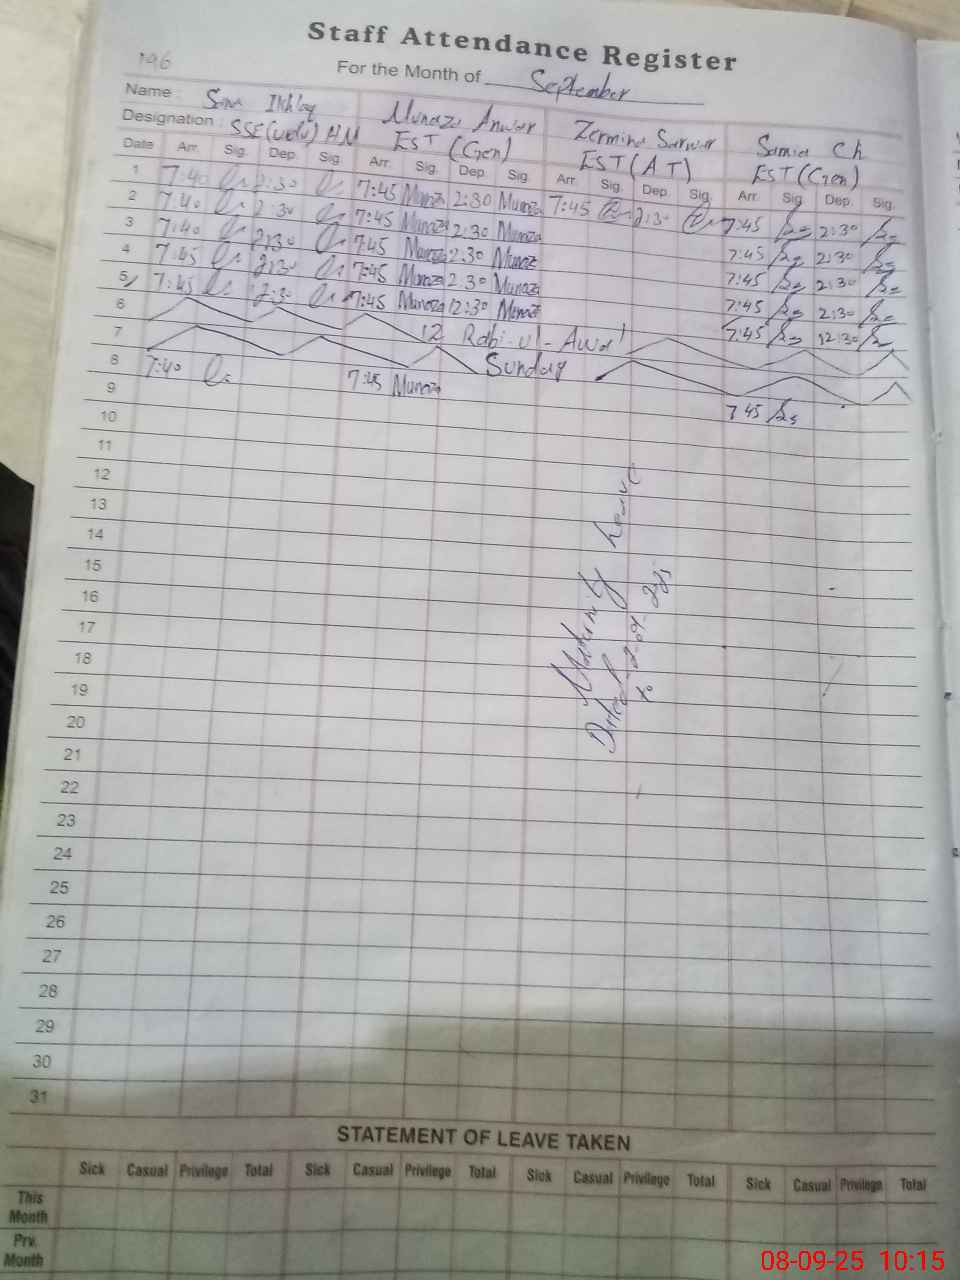 Staff Attendance Register
196
For the Month of September
Name : Sana Ikhlaq Munaza Anwar Zermina Sarwar Samia Ch
Designation : SSE(Urdu) HM EST (Gen) EST (AT) EST (Gen)
Date Arr. Sig. Dep. Sig. Arr. Sig. Dep. Sig. Arr. Sig. Dep. Sig. Arr. Sig. Dep. Sig.
1 7:40 2:30 7:45 Munaza 2:30 Munaza 7:45 2:30 7:45 2:30
2 7:40 2:30 7:45 Munaza 2:30 Munaza 7:45 2:30
3 7:40 2:30 7:45 Munaza 2:30 Munaza 7:45 2:30
4 7:45 2:30 7:45 Munaza 2:30 Munaza 7:45 2:30
5 7:45 12:30 7:45 Munaza 12:30 Munaza 7:45 12:30
6 12 Rabi-ul-Awal
7 Sunday
8 7:40 7:45 Munaza 7:45
9
10
11
12
13
14
15
16
17
18
19
20
21
22
23
24
25
26
27
28
29
30
31
Maternity Leave
to
STATEMENT OF LEAVE TAKEN
Sick Casual Privilege Total Sick Casual Privilege Total Sick Casual Privilege Total Sick Casual Privilege Total
This
Month
Prv.
Month
08-09-25 10:15